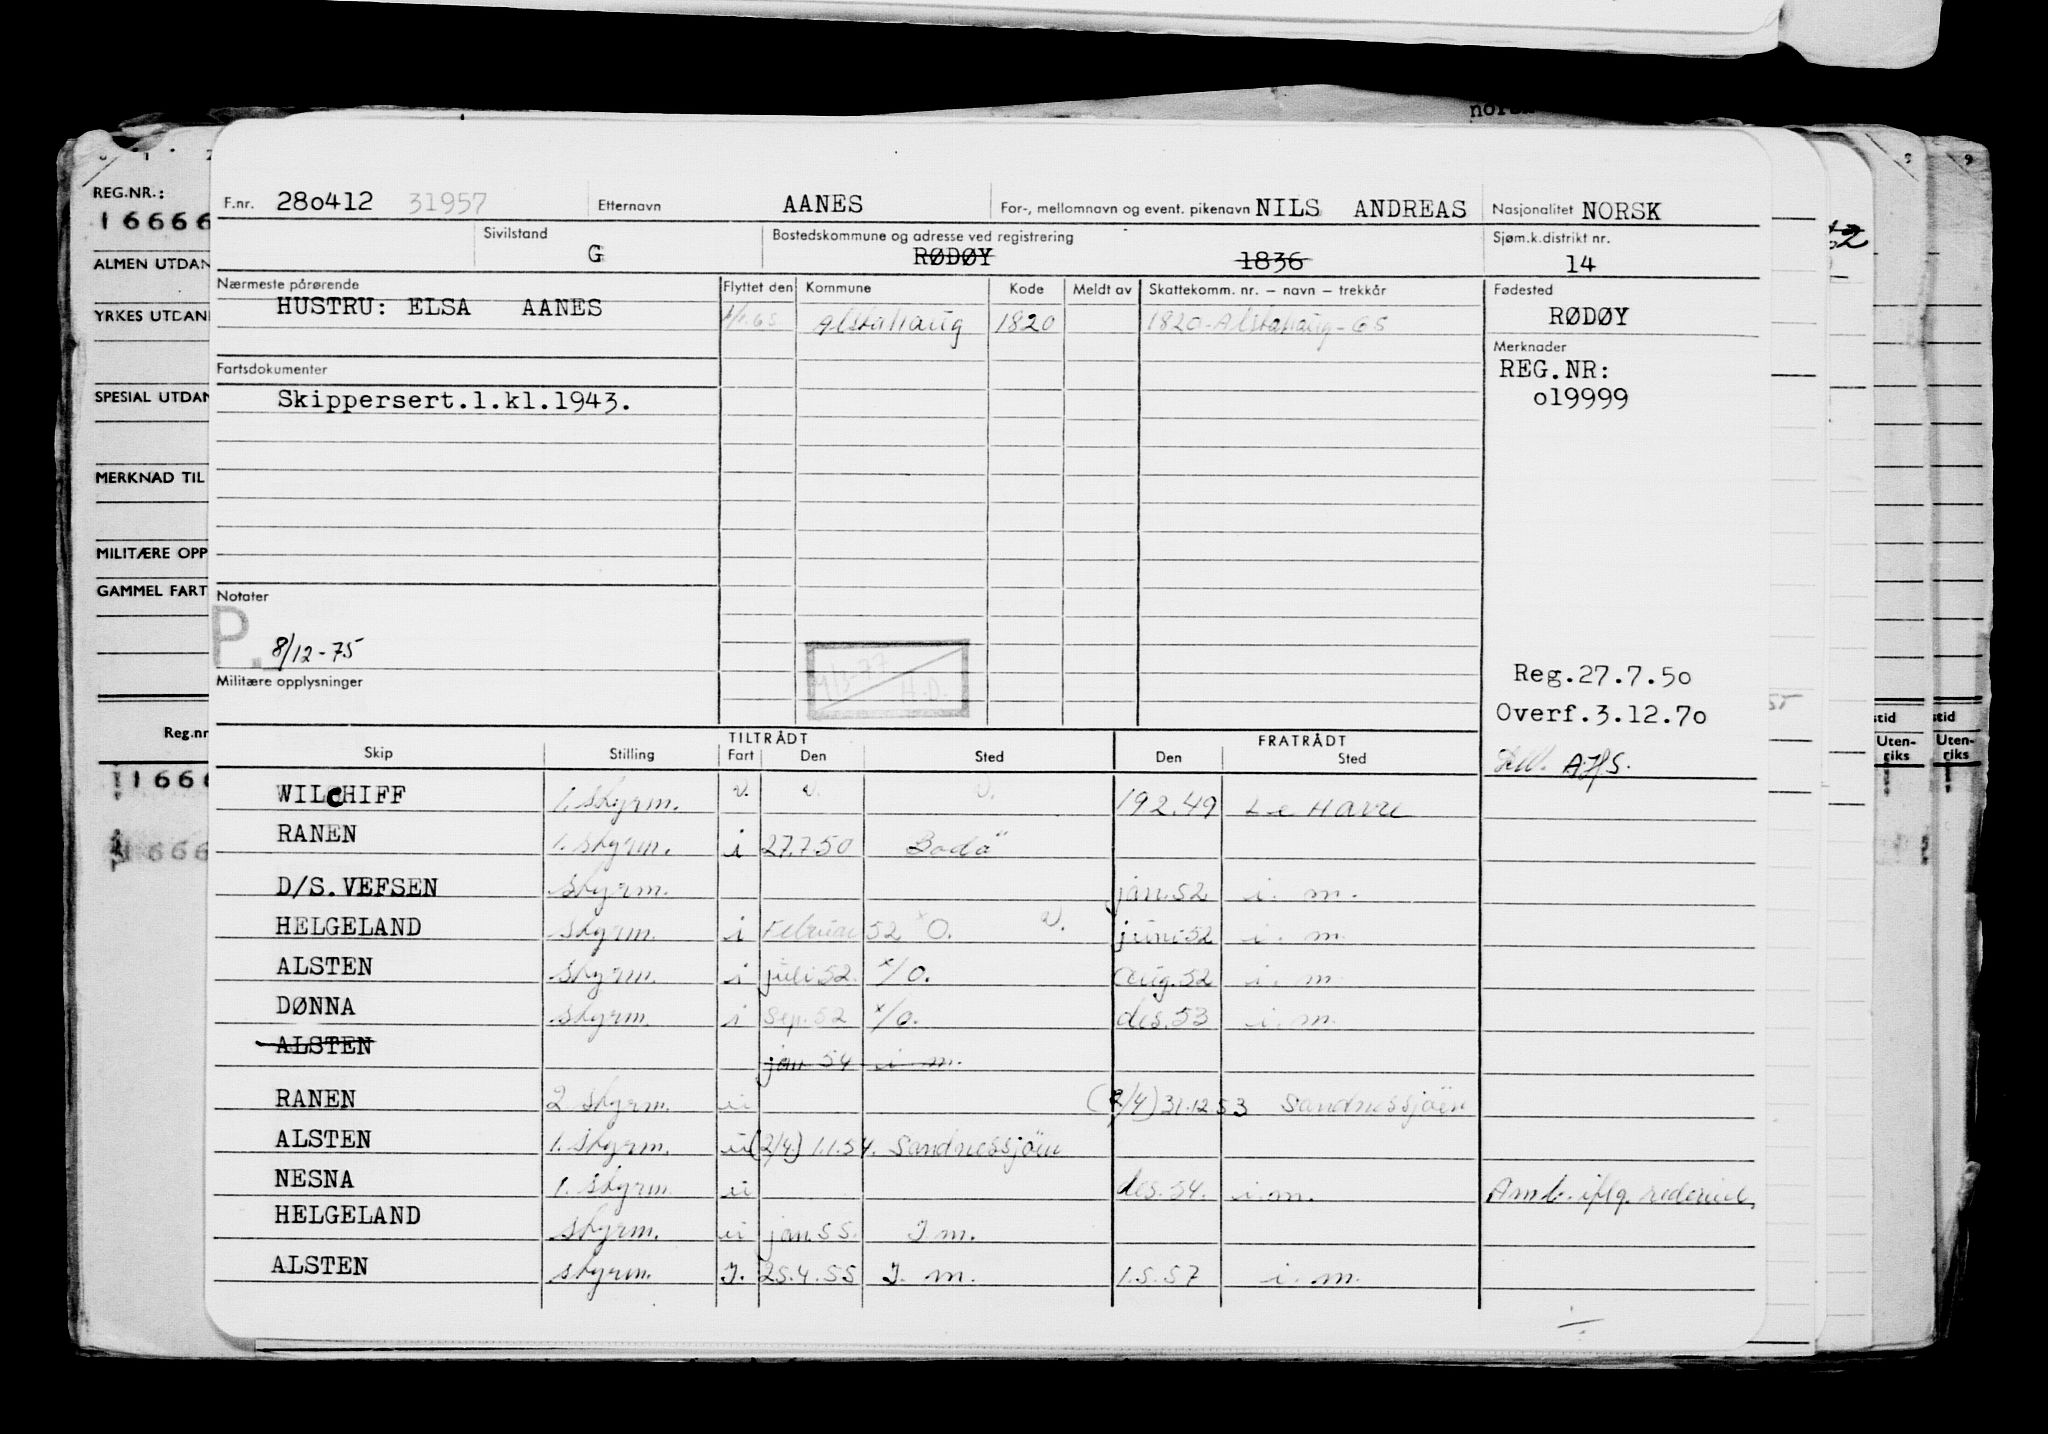 nors
REG.NR.:
16666
ALMEN UTDAN
YRKES UTDAN
SPESIAL UTDAN
MERKNAD TIL
MILITÆRE OPP
GAMMEL FART
Reg.nr
11666
1666
F.nr. 28o412 31957 Etternavn AANES For-, mellomnavn og event. pikenavn NILS ANDREAS Nasjonalitet NORSK
Sivilstand G Bostedskommune og adresse ved registrering RØDØY 1836 Sjøm.k.distrikt nr. 14
Nærmeste pårørende Flyttet den Kommune Kode Meldt av Skattekomm. nr. – navn – trekkår Fødested
HUSTRU: ELSA AANES Alstahaug 1820 1820-Alstahaug-65 RØDØY
Fartsdokumenter Merknader
REG.NR:
Skippersert.1.kl.1943. o19999
Notater
P. 8/12-75
Militære opplysninger
H.O.
Reg.27.7.5o
Overf.3.12.7o
A.H.S.
Skip Stilling TILTRÅDT Fart Den Sted FRATRÅDT Den Sted
WILCHIFF 1. styrm. v. v. v. 192.49 Le Havre
RANEN 1. styrm. i 27.7.50 Bodö
D/S.VEFSEN styrm. jan.52 i. m.
HELGELAND styrm. i Februar 52 x O. v. juni 52 i. m.
ALSTEN styrm. i juli 52. x/O. aug.52 i. m.
DØNNA styrm. i Sep. 52 x/O. des.53 i. m.
ALSTEN jan 54 i m.
RANEN 2 styrm. ii (2/4) 31.12.53 Sandnessjöen
ALSTEN 1. styrm. ii (2/4.) 1.1.54. Sandnessjöen
NESNA 1. styrm. ii des. 54. i. m. Anm b. iflg. rederiet.
HELGELAND styrm. ii jan.55. I m.
ALSTEN styrm. I. 25.4.55 I. m. 1.5.57 i. m.
stid
Uten-
riks
stid
Uten-
riks